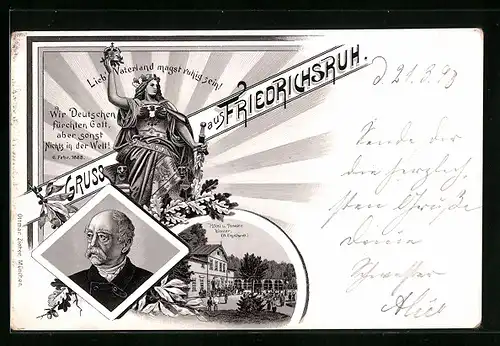 Lieb Vaterland magst ruhig sein!
Wir Deutschen
fürchten Gott,
aber sonst
Nichts in der Welt!
6. Febr. 1888.
GRUSS aus FRIEDRICHSRUH.
Hôtel u. Pension
Ottmar Zieher, München.
d 21.8.
Sende dir
die herzlich-
sten Grüße
Deine
Schwester
Alice